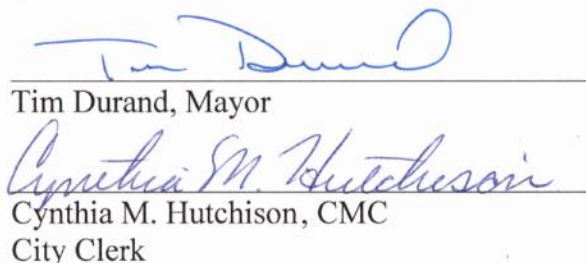 Tim Durand
Tim Durand, Mayor
Cynthia M. Hutchison
Cynthia M. Hutchison, CMC
City Clerk